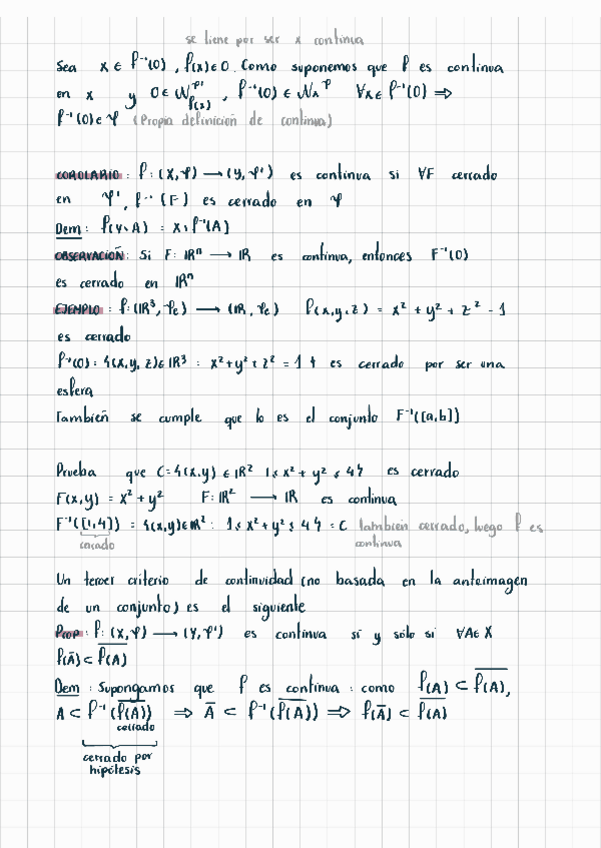 se tiene por ser x continua
Sea x ∈ f⁻¹(O), f(x)∈O. Como suponemos que f es continua
en x y O∈ N^φ'_f(x), f⁻¹(O) ∈ N_x^φ ∀x∈ f⁻¹(O) ⇒
f⁻¹(O)∈ φ (Propia definición de continua)
COROLARIO: f: (X,φ) → (Y,φ') es continua si ∀F cerrado
en φ', f⁻¹(F) es cerrado en φ
Dem: f(Y\A) = X\f⁻¹(A)
OBSERVACIÓN: Si F: ℝⁿ → ℝ es continua, entonces F⁻¹(0)
es cerrado en ℝⁿ
EJEMPLO: f: (ℝ³, φe) → (ℝ, φe) f(x,y,z) = x² + y² + z² - 1
es cerrado
f⁻¹(0): {(x,y,z)∈ ℝ³ : x²+y²+z² = 1} es cerrado por ser una
esfera
También se cumple que lo es el conjunto F⁻¹([a,b])
Prueba que C={(x,y) ∈ ℝ² 1≤ x² + y² ≤ 4} es cerrado
F(x,y) = x² + y² F: ℝ² → ℝ es continua
F⁻¹([1,4]) = {(x,y)∈ℝ²: 1≤ x²+y² ≤ 4} = C también cerrado, luego f es
cerrado continua
Un tercer criterio de continuidad (no basada en la anteimagen
de un conjunto) es el siguiente
PROP: f: (X,φ) → (Y,φ') es continua si y sólo si ∀A∈X
f(Ā) ⊂ \overline{f(A)}
Dem: Supongamos que f es continua: como f(A) ⊂ \overline{f(A)},
A ⊂ f⁻¹(\overline{f(A)}) ⇒ Ā ⊂ f⁻¹(\overline{f(A)}) ⇒ f(Ā) ⊂ \overline{f(A)}
cerrado
cerrado por
hipótesis